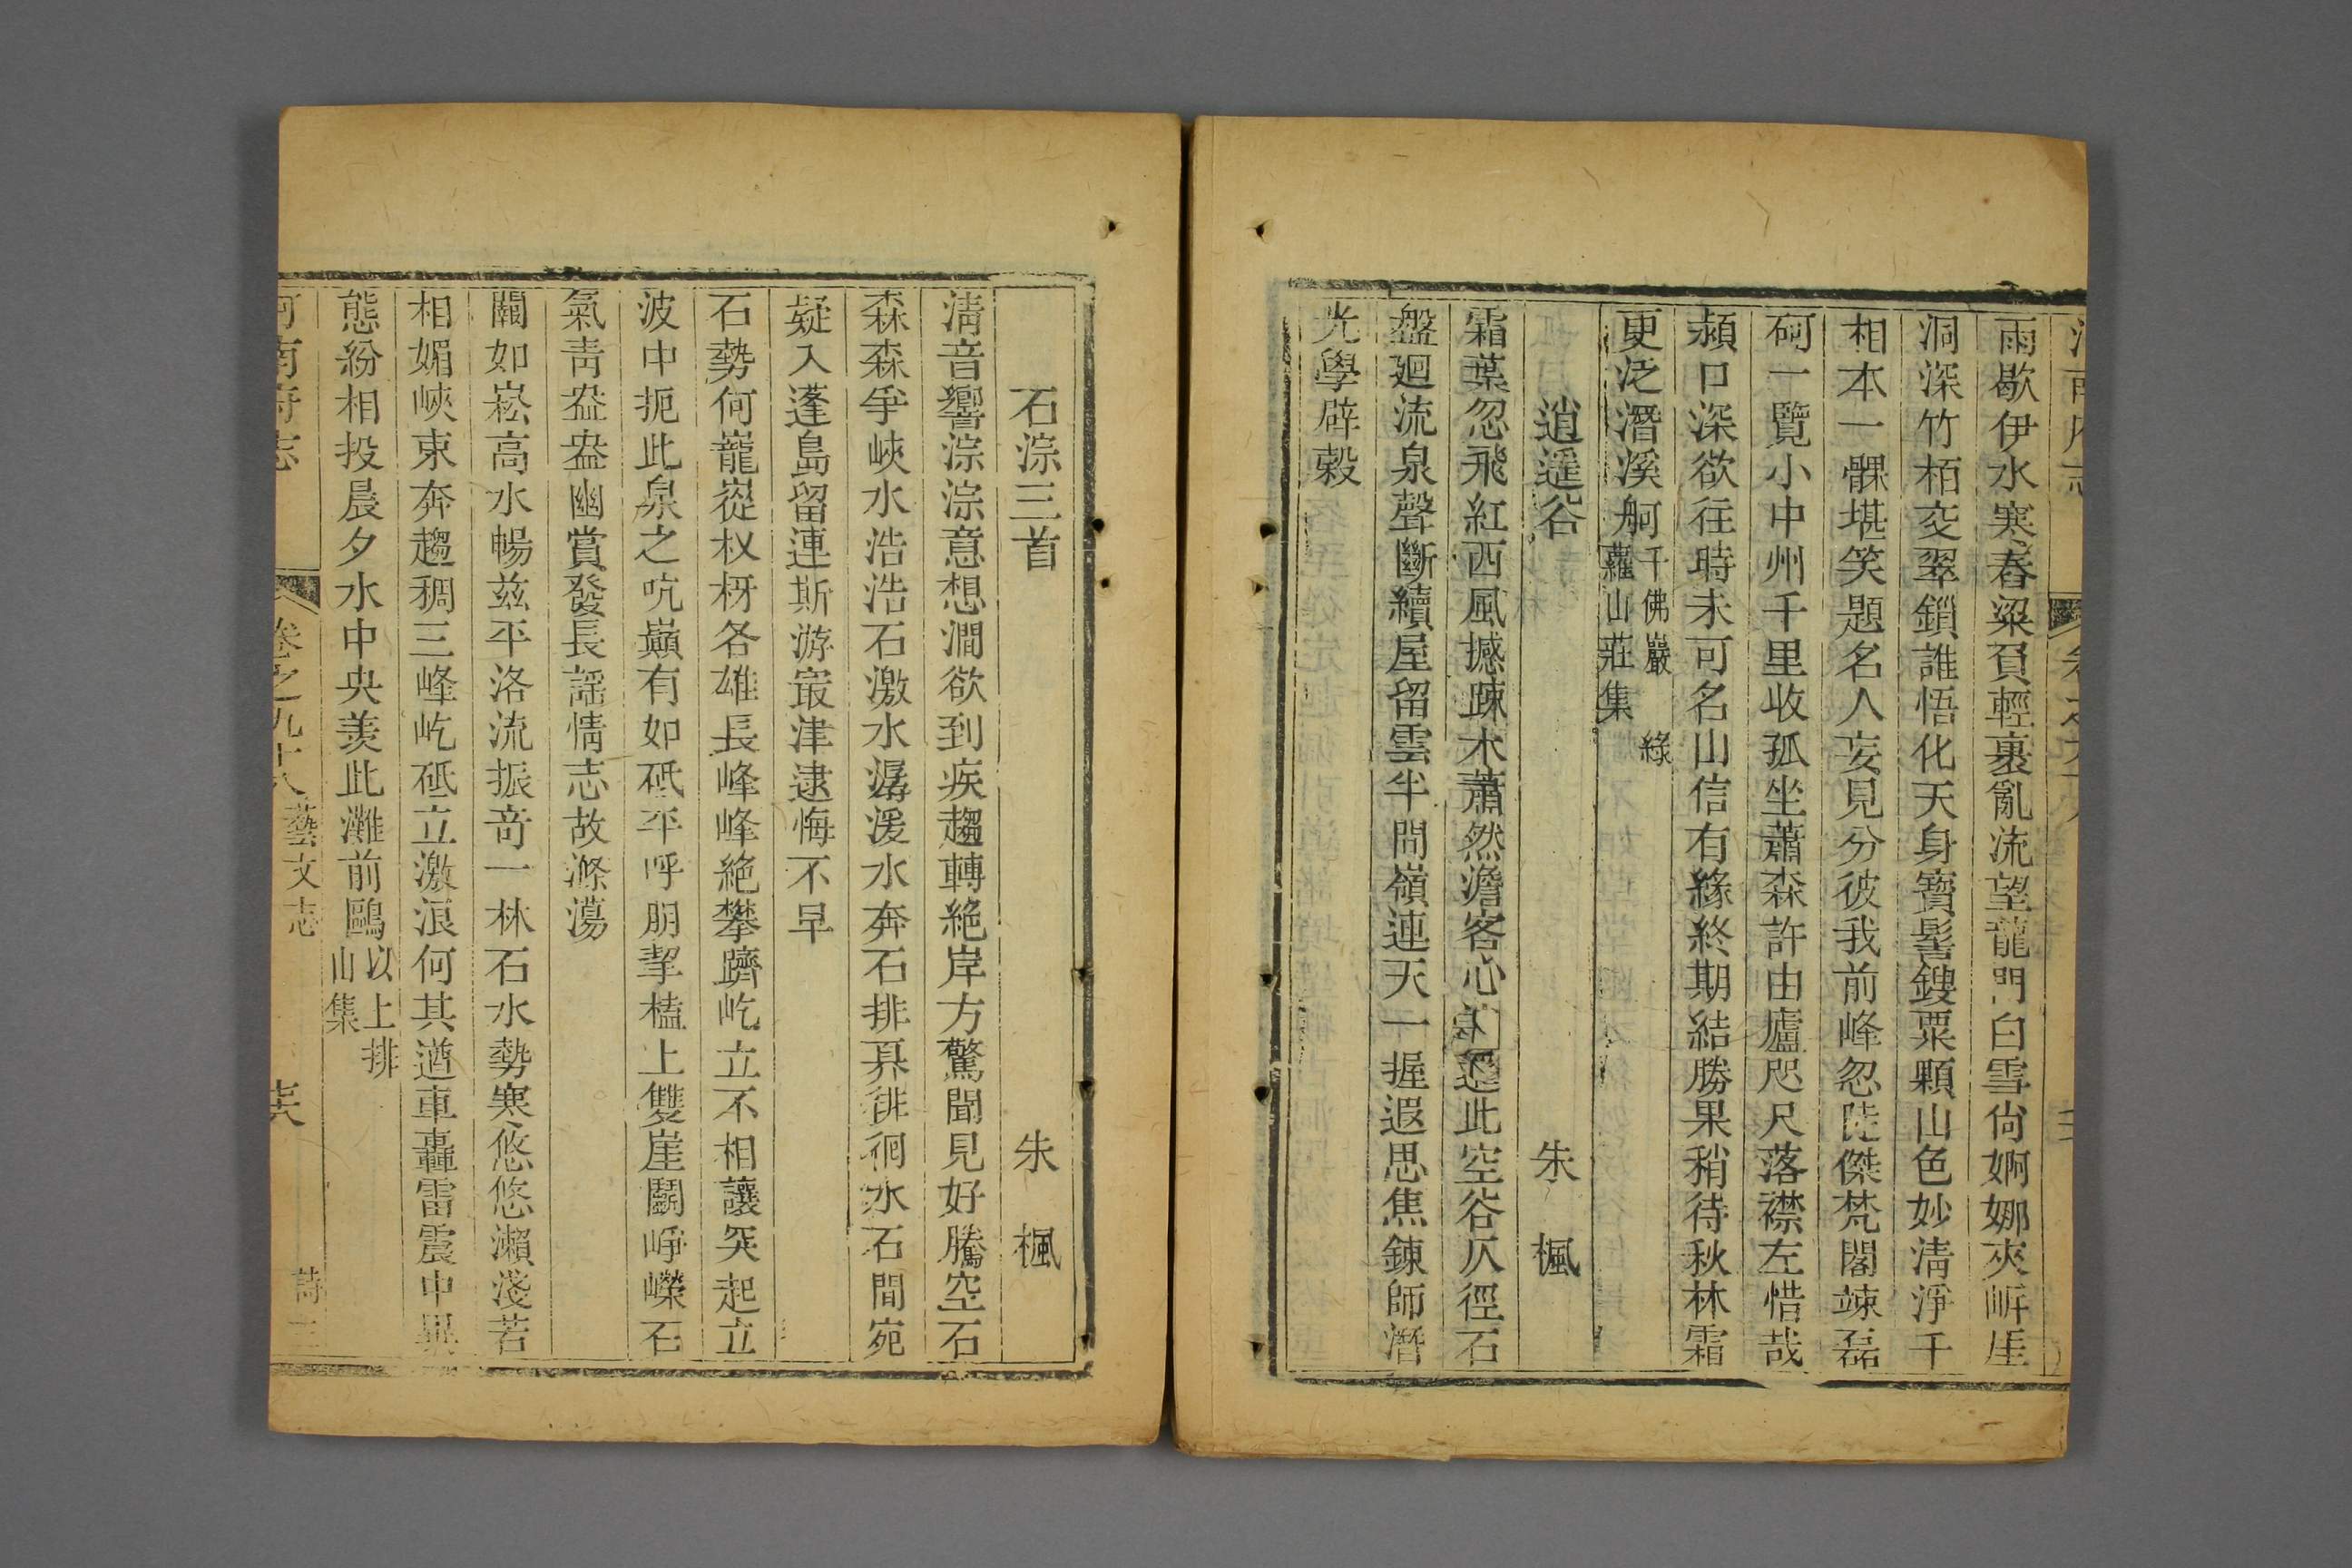 雨歇伊水寒舂粱負輕裹亂流望龍門白雪尙婀娜夾岍厓
洞深竹栢交翠鎖誰悟化天身寶髻鏤粟顆山色妙淸淨千
相本一髁堪笑題名人妄見分彼我前峰忽陡傑梵閣竦磊
砢一覽小中州千里收孤坐蕭森許由廬咫尺落襟左惜哉
頳口深欲往時未可名山信有緣終期結勝果稍待秋林霜
更泛潛溪舸千佛巖 綠
蘿山莊集
逍遥谷 朱 楓
霜葉忽飛紅西風撼踈木蕭然澹客心遥此空谷仄徑石
盤廻流泉聲斷續屋留雲半間嶺連天一握遐思焦鍊師潛
光學辟榖
石淙三首 朱 楓
淸音響淙淙意想澗欲到疾趨轉絶岸方驚聞見好騰空石
森森爭峽水浩浩石激水潺湲水奔石排奡徘徊水石間宛
疑入蓬島留連斯游㝡津逮悔不早
石勢何巃嵸杈枒各雄長峰峰絶攀躋屹立不相讓突起立
波中扼此泉之吭巔有如砥平呼朋挈榼上雙崖鬭崢嶸石
氣靑盎盎幽賞發長謡情志故滌蕩
闢如崧高水暢兹平洛流振竒一林石水勢寒悠悠瀨淺若
相媚峽束奔趨稠三峰屹砥立激浪何其遒車轟雷震中異
態紛相投晨夕水中央羨此灘前鷗以上排
山集
河南府志 卷之九十八 藝文志 詩三